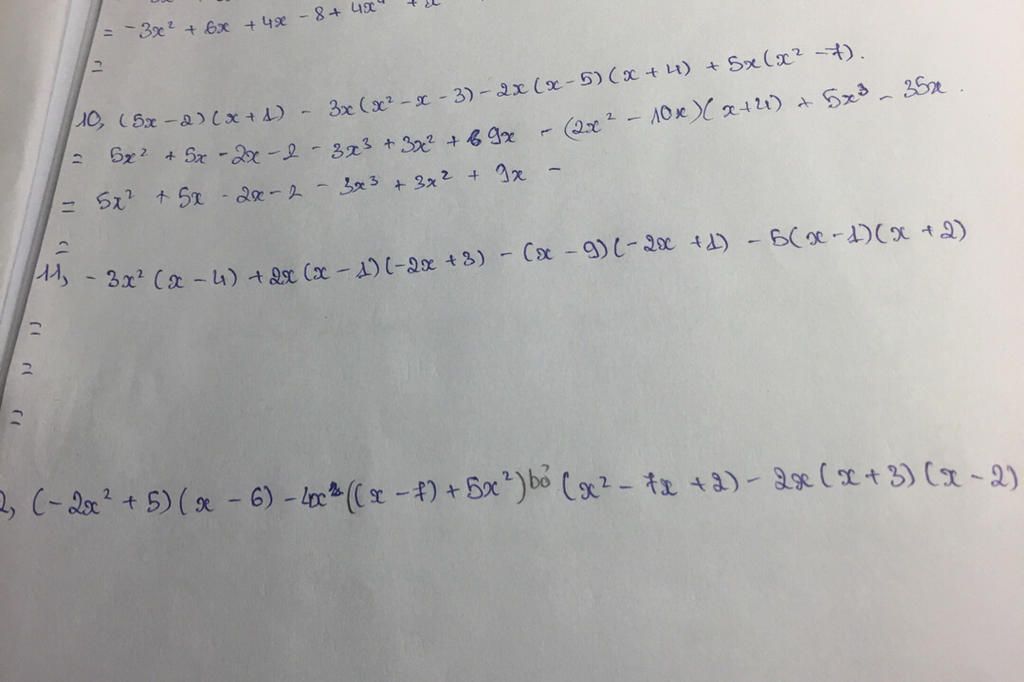 = -3x² + 6x + 4x - 8 + 4x⁴ +
=
10, (5x - 2)(x + 1) - 3x(x² - x - 3) - 2x(x - 5)(x + 4) + 5x(x² - 7).
= 5x² + 5x - 2x - 2 - 3x³ + 3x² + 9x - (2x² - 10x)(x + 4) + 5x³ - 35x.
= 5x² + 5x - 2x - 2 - 3x³ + 3x² + 9x -
=
11, -3x²(x - 4) + 2x(x - 1)(-2x + 3) - (x - 9)(-2x + 1) - 5(x - 1)(x + 2)
=
=
=
2, (-2x² + 5)(x - 6) - 4x²((x - 7) + 5x²) bỏ (x² - 7x + 2) - 2x(x + 3)(x - 2)